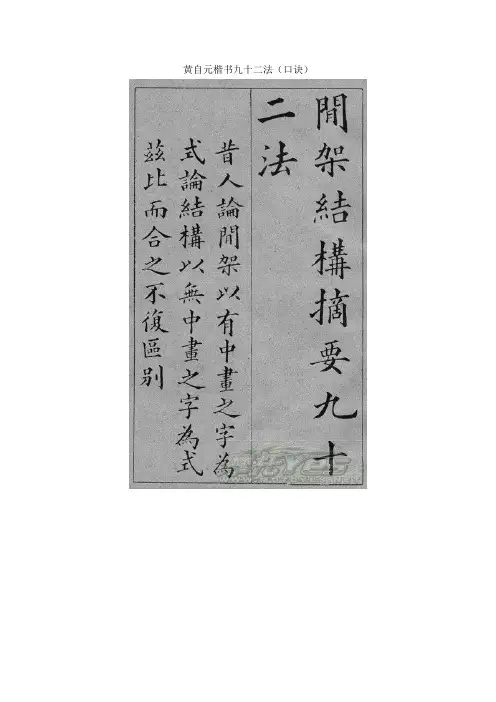 黄自元楷书九十二法（口诀）
間架結構摘要九十
二法
昔人論間架以有中畫之字為
式論結構以無中畫之字為式
茲比而合之不復區别